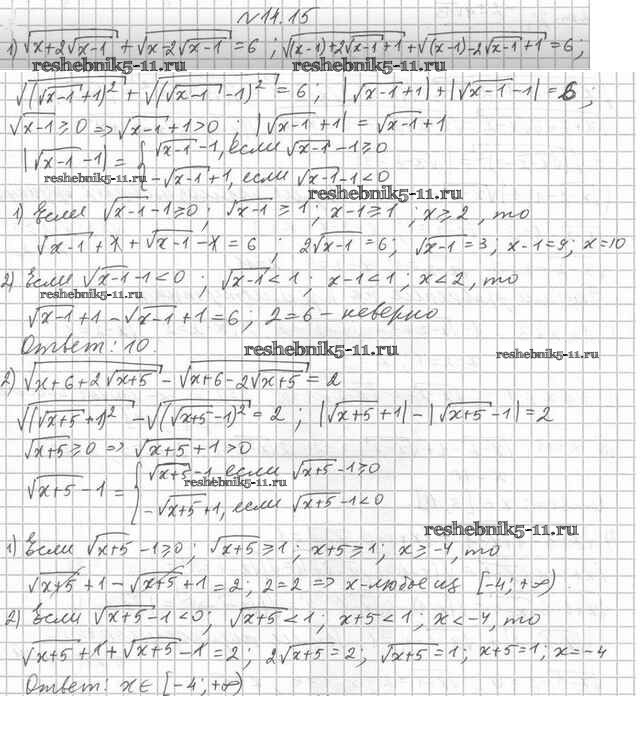 №14.15
1) √(x+2√(x-1)) + √(x-2√(x-1)) = 6 ; √((x-1)+2√(x-1)+1) + √((x-1)-2√(x-1)+1) = 6;
reshebnik5-11.ru reshebnik5-11.ru
√((√(x-1)+1)²) + √((√(x-1)-1)²) = 6 ; |√(x-1)+1| + |√(x-1)-1| = 6 ;
√(x-1) ≥ 0 => √(x-1)+1 > 0 ; |√(x-1)+1| = √(x-1)+1
|√(x-1)-1| = { √(x-1)-1, если √(x-1)-1 ≥ 0
-√(x-1)+1, если √(x-1)-1 < 0
reshebnik5-11.ru reshebnik5-11.ru
1) Если √(x-1)-1 ≥ 0 ; √(x-1) ≥ 1 ; x-1 ≥ 1 ; x ≥ 2 , то
√(x-1) + 1 + √(x-1) - 1 = 6 ; 2√(x-1) = 6; √(x-1) = 3; x-1 = 9; x = 10
2) Если √(x-1)-1 < 0 ; √(x-1) < 1 ; x-1 < 1 ; x < 2 , то
reshebnik5-11.ru
√(x-1)+1 - √(x-1)+1 = 6 ; 2 = 6 - неверно
Ответ: 10.
reshebnik5-11.ru reshebnik5-11.ru
2) √(x+6+2√(x+5)) - √(x+6-2√(x+5)) = 2
√((√(x+5)+1)²) - √((√(x+5)-1)²) = 2 ; |√(x+5)+1| - |√(x+5)-1| = 2
√(x+5) ≥ 0 => √(x+5)+1 > 0
√(x+5)-1 = { √(x+5)-1, если √(x+5)-1 ≥ 0
reshebnik5-11.ru
-√(x+5)+1, если √(x+5)-1 < 0
reshebnik5-11.ru
1) Если √(x+5)-1 ≥ 0; √(x+5) ≥ 1; x+5 ≥ 1; x ≥ -4, то
√(x+5)+1 - √(x+5)+1 = 2; 2 = 2 => x - любое из [-4; +∞)
2) Если √(x+5)-1 < 0; √(x+5) < 1; x+5 < 1; x < -4, то
√(x+5)+1+√(x+5)-1 = 2; 2√(x+5) = 2; √(x+5) = 1; x+5 = 1; x = -4
Ответ: x ∈ [-4; +∞)